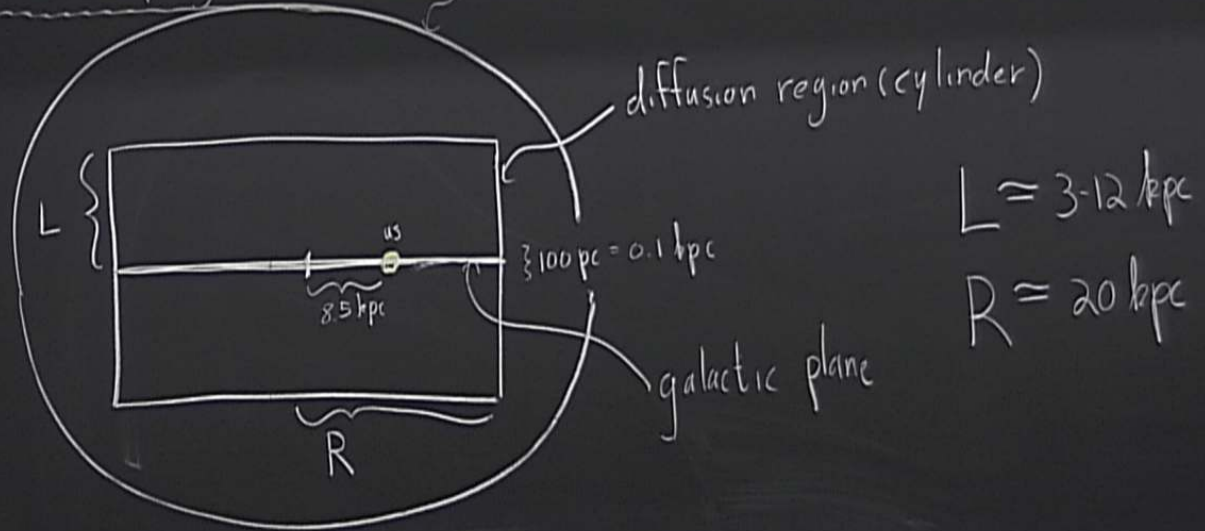 diffusion region (cylinder)
L
us
8.5 kpc
} 100 pc = 0.1 kpc
galactic plane
R
L ≃ 3-12 kpc
R ≃ 20 kpc